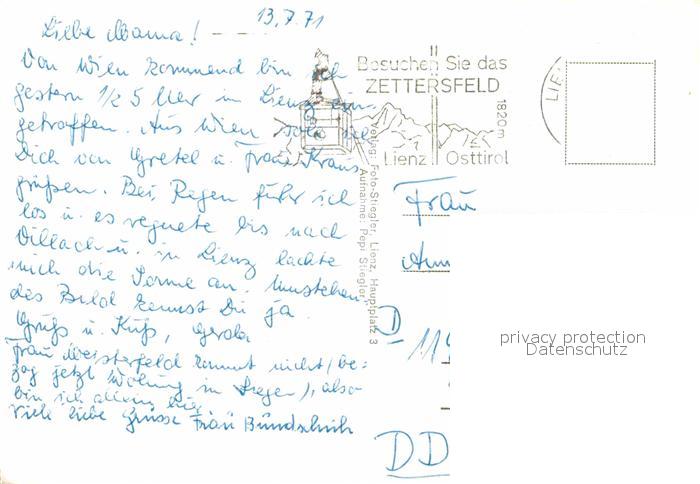 13.7.71
Liebe Mama!
Von Wien kommend bin ich
gestern 1/2 5 Uhr in Lienz ein-
getroffen. Aus Wien soll ich
Dich von Gretel u. Frau Kraus
grüßen. Bei Regen fuhr ich
los u. es regnete bis nach
Villach u. in Lienz lachte
mich die Sonne an. Umstehen-
des Bild kennst Du ja.
Gruß u. Kuß, Gerda
Frau Meisterfeld kommt nicht (be-
zog jetzt Wohnung in ), also
bin ich allein hier.
Viele liebe Grüsse Frau Bundschuh
Besuchen Sie das
ZETTERSFELD
1820m
Lienz Osttirol
LIE
Verlag: Foto-Stiegler, Lienz, Hauptplatz 3
Aufnahme: Pepi Stiegler
Frau
D
DD
privacy protection
Datenschutz